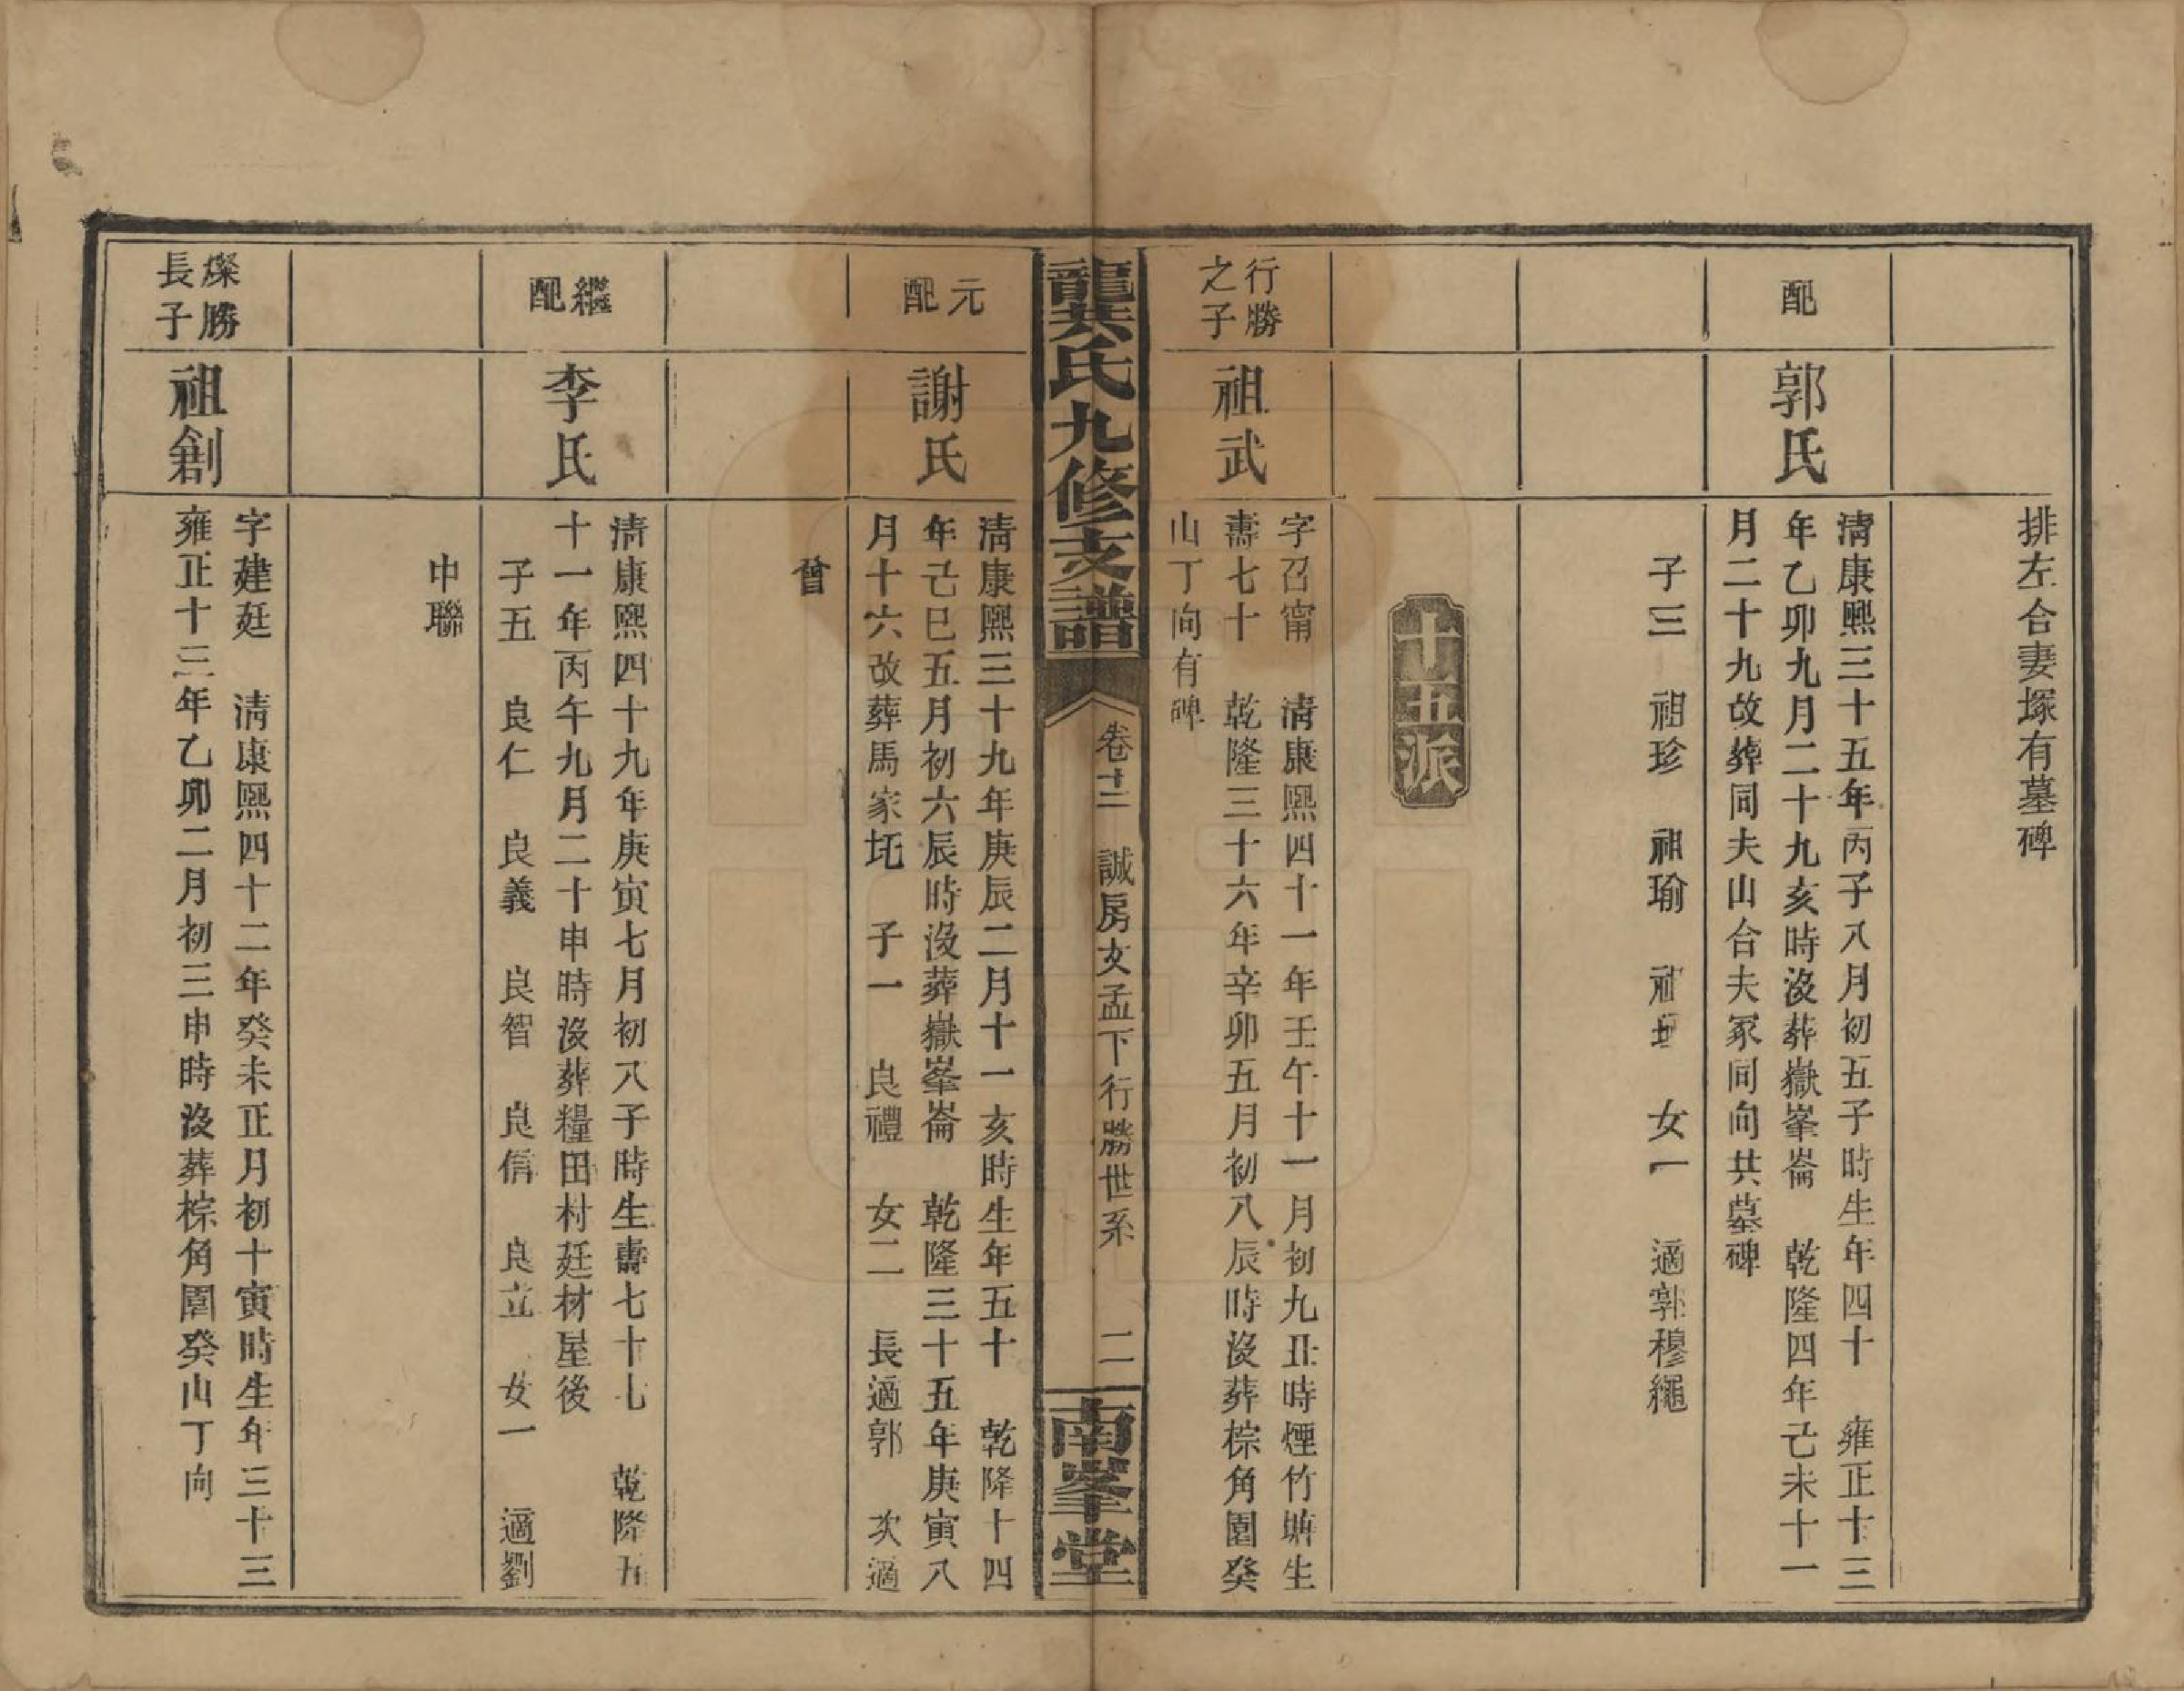 排左合妻塚有墓碑
配
郭氏
清康熙三十五年丙子八月初五子時生年四十　雍正十三
年乙卯九月二十九亥時沒葬嶽峯崙　乾隆四年己未十一
月二十九改葬同夫山合夫冢同向共墓碑
子三　祖珍　祖瑜　女一　適郭穆繩
十五派
行勝
之子
祖武
字召甯　清康熙四十一年壬午十一月初九丑時煙竹塘生
壽七十　乾隆三十六年辛卯五月初八辰時沒葬棕角園癸
山丁向有碑
龔氏九修支譜
卷十二　誠房友孟下行勝世系　二
南峯堂
元配
謝氏
清康熙三十九年庚辰二月十一亥時生年五十　乾隆十四
年己巳五月初六辰時沒葬嶽峯崙　乾隆三十五年庚寅八
月十六改葬馬家坨　子一　良禮　女二　長適郭　次適
曾
繼配
李氏
清康熙四十九年庚寅七月初八子時生壽七十七　乾隆五
十一年丙午九月二十申時沒葬糧田村廷材屋後
子五　良仁　良義　良智　良信　良立　女一　適劉
中聯
燦勝
長子
祖創
字建廷　清康熙四十二年癸未正月初十寅時生年三十三
雍正十三年乙卯二月初三申時沒葬棕角園癸山丁向